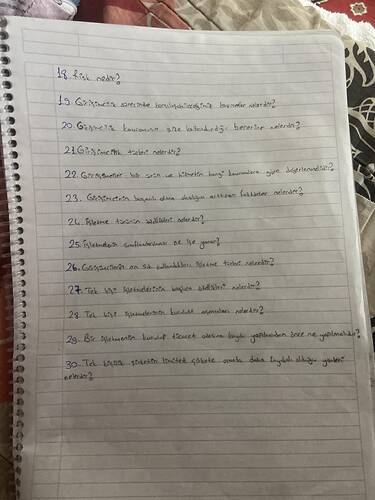 18. Risk nedir?
19. Girişimcilik sürecinde karşılaşabileceğimiz kavramlar nelerdir?
20. Girişimcilik kavramının size kazandırdığı beceriler nelerdir?
21. Girişimcilik türleri nelerdir?
22. Girişimciler bir ürün ve hizmetin hangi kavramlara göre değerlendirilir?
23. Girişimcinin başarılı olma olasılığını arttıran faktörler nelerdir?
24. İşletme türünün özellikleri nelerdir?
25. İşletmelerin sınıflandırılması ne işe yarar?
26. Girişimcilerin en sık kullandıkları işletme türleri nelerdir?
27. Tek kişi işletmelerinin başlıca özellikleri nelerdir?
28. Tek kişi işletmelerinin kuruluş aşamaları nelerdir?
29. Bir işletmenin kurulup ticaret odasına kaydı yapılmadan önce ne yapılmalıdır?
30. Tek kişilik şirketin limitet şirkete oranla daha faydalı olduğu yönleri
nelerdir?